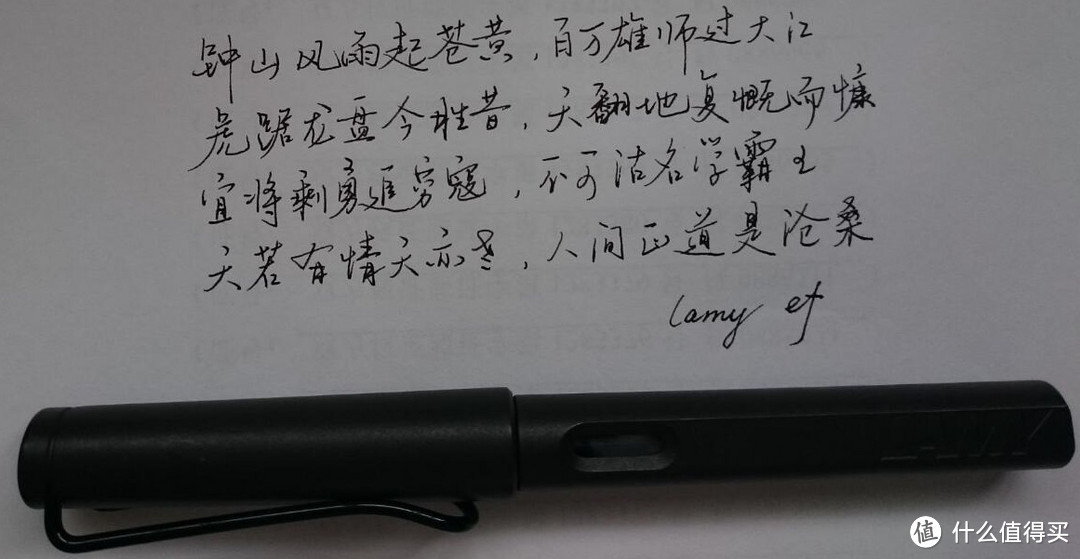 钟山风雨起苍黄,百万雄师过大江
虎踞龙盘今胜昔,天翻地复慨而慷
宜将剩勇追穷寇,不可沽名学霸王
天若有情天亦老,人间正道是沧桑
Lamy ef
LAMY
值 什么值得买